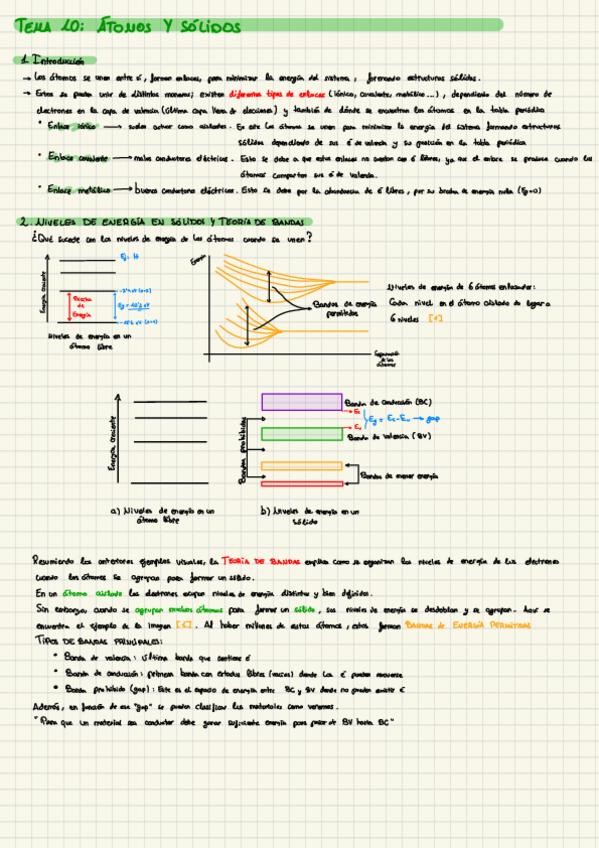 TEMA 10: ÁTOMOS Y SÓLIDOS
1. Introducción
→ Los átomos se unen entre sí, forman enlaces, para minimizar la energía del sistema, formando estructuras sólidas.
→ Estos se pueden unir de distintas maneras; existen diferentes tipos de enlaces (iónico, covalente, metálico ...), dependiendo del número de
electrones en la capa de valencia (última capa llena de elecciones) y también de dónde se encuentran los átomos en la tabla periódica
• Enlace iónico → suelen actuar como aislantes. En este los átomos se unen para minimizar la energía del sistema formando estructuras
sólidas dependiendo de sus é de valencia y su posición en la tabla periódica
• Enlace covalente → malos conductores eléctricos. Esto se debe a que estos enlaces no cuentan con é libres, ya que el enlace se produce cuando los
átomos comparten sus é de valencia.
• Enlace metálico → buenos conductores eléctricos. Esto se debe por la abundancia de é libres, por su banda de energía nula (Eg=0)
2. NIVELES DE ENERGÍA EN SÓLIDOS Y TEORÍA DE BANDAS
¿Qué sucede con los niveles de energía de los átomos cuando se unen?
Energía creciente
Ej: H
Brecha
de
Energía
Niveles de energía en un
átomo libre
Energía
Bandas de energía
permitidas
Separación
de los
átomos
Niveles de energía de 6 átomos enlazados:
Cada nivel en el átomo aislado da lugar a
6 niveles [1]
Energía creciente
a) Niveles de energía en un
átomo libre
Bandas prohibidas
Banda de conducción (BC)
Ec
Eg = Ec-Ev → gap
Ev
Banda de valencia (BV)
Bandas de menor energía
b) Niveles de energía en un
sólido
Resumiendo los anteriores ejemplos visuales, la TEORÍA DE BANDAS explica como se organizan los niveles de energía de los electrones
cuando los átomos se agrupan para formar un sólido.
En un átomo aislado los electrones ocupan niveles de energía distintos y bien definidos.
Sin embargo, cuando se agrupan muchos átomos para formar un sólido, sus niveles de energía se desdoblan y se agrupan. Aquí se
encuentra el ejemplo de la imagen [1]. Al haber millones de estos átomos, estos forman BANDAS DE ENERGÍA PERMITIDAS
TIPOS DE BANDAS PRINCIPALES:
• Banda de valencia: última banda que contiene é
• Banda de conducción: primera banda con estados libres (vacíos) donde los é pueden moverse
• Banda prohibida (gap): Este es el espacio de energía entre BC y BV donde no pueden existir é
Además, en función de ese "gap" se pueden clasificar los materiales como veremos.
"Para que un material sea conductor debe ganar suficiente energía para pasar de BV hasta BC"